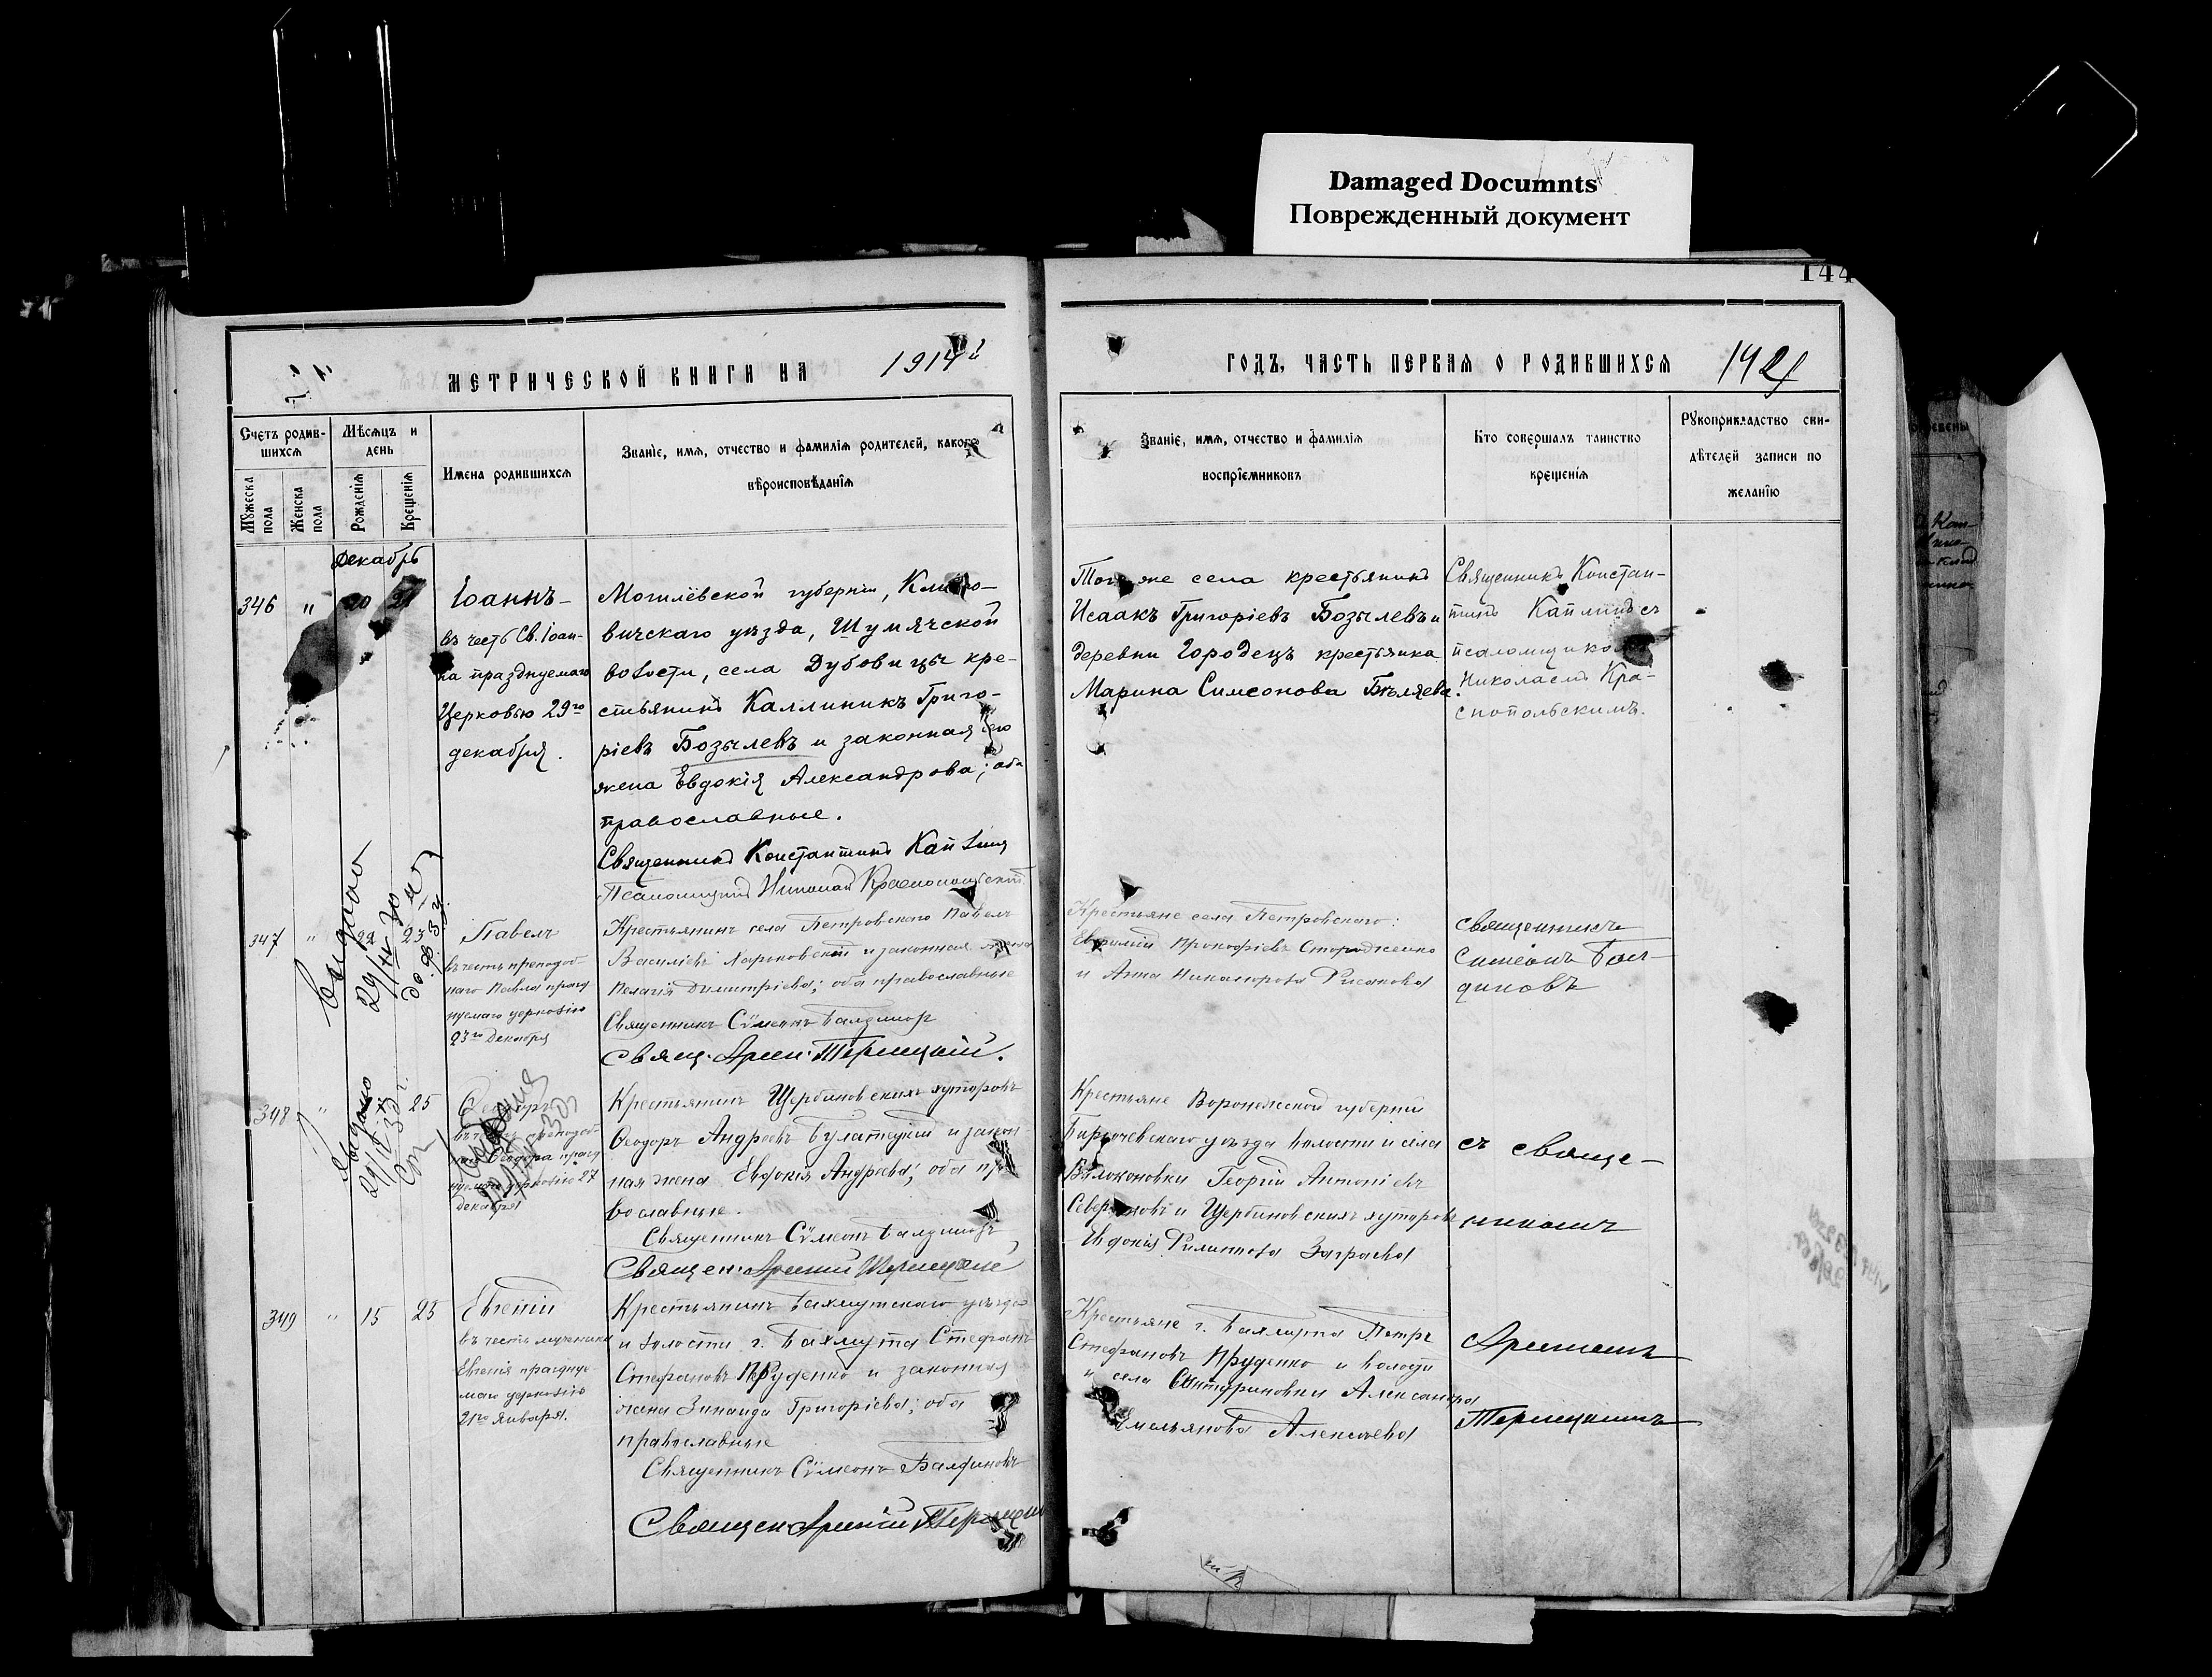 Damaged Documnts
Поврежденный документ
144
МЕТРИЧЕСКОЙ КНИГИ НА 1914
ГОДЪ, ЧАСТЬ ПЕРВАЯ О РОДИВШИХСЯ
Счетъ родившихся
Мѣсяцъ и день
Мужеска пола
Женска пола
Рожденія
Крещенія
Имена родившихся
Званіе, имя, отчество и фамилія родителей, какого
вѣроисповѣданія
Званіе, имя, отчество и фамилія
воспріемниковъ
Кто совершалъ таинство
крещенія
Рукоприкладство сви-
дѣтелей записи по
желанію
Декабрь
346 " 20 21
Іоаннъ
въ честь Св. Іоан-
на празднуемаго
Церковью 29го
декабря.
Могилёвской губерніи, Климо-
вичскаго уѣзда, Шумячской
волости, села Дубовицы кре-
стьянинъ Каллиникъ Григо-
ріевъ Бозылевъ и законная его
жена Евдокія Александрова; оба
православные.
Священникъ Константинъ Каплинъ
Псаломщикъ Николай Краснопольскій
Того же села крестьянинъ
Исаакъ Григоріевъ Бозылевъ и
деревни Городецъ крестьянка
Марина Симеонова Бѣляева.
Священникъ Констан-
тинъ Каплинъ съ
псаломщикомъ
Николаемъ Кра-
снопольскимъ.
347 " 22 23
Павелъ
въ честь преподоб-
наго Павла празд
нуемаго церковію
23го Декабря
Крестьянинъ села Петровскаго Павелъ
Василіевъ Харьковскій и законная жена
Пелагія Димитріева; оба православные
Священникъ Сѵмеонъ
Свящ. Арсен. Терлецкій.
Крестьяне села Петровскаго:
Евфимій Прокофіевъ Стороженко
и Анна Никанорова
священникъ
Симеонъ
348 " 25
Ѳеодоръ
въ честь преподоб
наго Ѳеодора празд
нуемаго церковію 27
Декабря
Крестьянинъ Щербиновскихъ хуторовъ
Ѳеодоръ Андреевъ Булатецкій и закон
ная жена Евдокія Андреева; оба пра
вославные.
Священникъ Сѵмеонъ
Священ. Арсеній Терлецкій
Крестьяне Воронежской губерніи
Бирюченскаго уѣзда волости и села
Вѣлоконовки Георгій Антоніевъ
и Щербиновскихъ хуторовъ
Евдокія Филиппова
съ свяще-
никомъ
349 " 15 25
Евгеній
въ честь мученика
Евгенія праздну
маго церковію
21го Января.
Крестьянинъ Бахмутскаго уѣзда
и волости г. Бахмута Стефанъ
Стефановъ Пруденко и законная
жена Зинаида Григоріева; оба
православные
Священникъ Сѵмеонъ
Священ Арсеній Терлецкій
Крестьяне г. Бахмута Петръ
Стефановъ Пруденко и волости
и села Александра
Емельянова Алексѣева
Арсеніемъ
Терлецкимъ
выдано
выдано